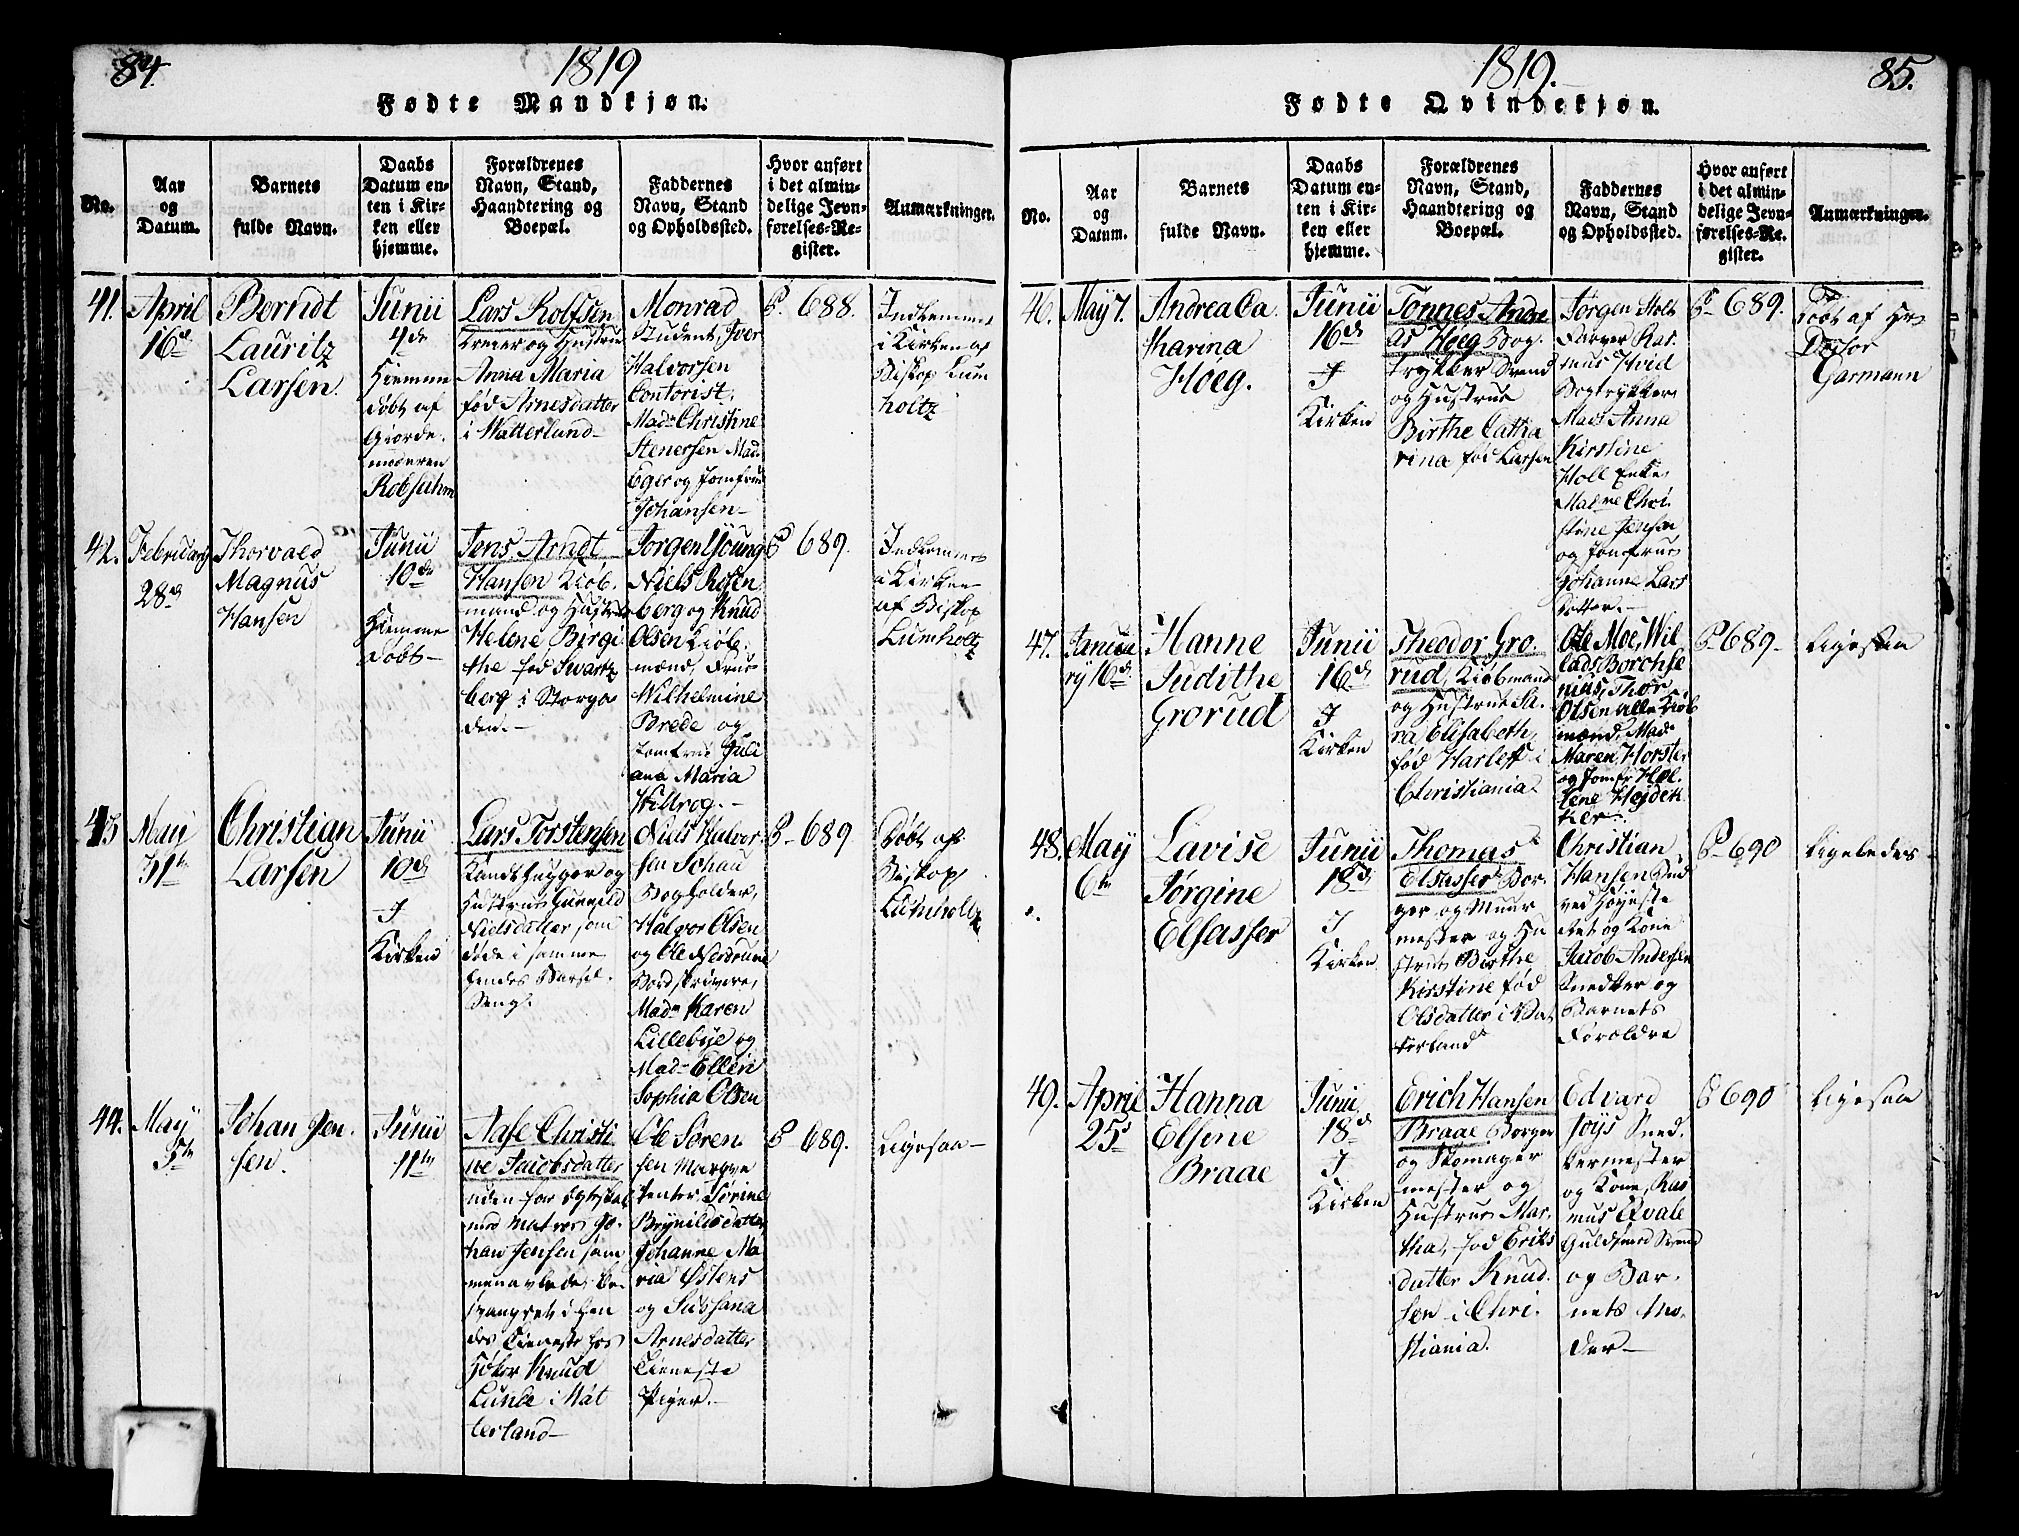 84.
1819
Fødte Mandkjøn.
No.
Aar
og
Datum.
Barnets
fulde Navn.
Daabs
Datum en-
ten i Kir-
ken eller
hjemme.
Forældrenes
Navn, Stand,
Haandtering og
Boepæl.
Faddernes
Navn, Stand
og Opholdssted.
Hvor anført
i det almin-
delige Jevn-
førelses-Re-
gister.
Anmærkninger.
41.
April
16de
Berndt
Lauritz
Larsen.
Junii
4de
Hiemme
døbt af
Giorde-
moderen
Lars Rolfsen
og Hustrue
Anna Maria
fød Arnesdatter
i Watterland
Monrad
Student, Iver
Halvorsen
Contorist,
Madm Christine
Stenersen Mad.
Eger og Jomfrue
Johansen
P. 688.
i Kirken af
Biskop Lum
holtz
42.
Februarij
28de
Thorvald
Magnus
Hansen
Junii
10de
Hiemme
døbt
Jens Arndt
Hansen Kiøb
mand og Hustrue
Helene Birgi
the fød Swartz
berg i Storga
den.
Jørgen Young
Niels Rosen
berg og Knud
Olsen Kiøb-
mænd, Frue
Wilhelmine
Brede og
Jomfrue Juli
ana Maria
P. 689.
i Kirken
af Biskop
Lumholtz
43
May
31te
Christian
Larsen
Junii
10de
I
Kirken
Lars Torstensen
og
Hustrue Gunnild
Nielsdatter som
døde i samme
hendes Barsel-
Seng.
Niels Halvor-
sen Schau
Bogholder,
Halvor Olsen
og Ole
Bordskrivere,
Madm Karen
Lillebye og
Madm Ellen
Sophia Olsen
P. 689
Døbt af
Biskop
Lumholtz
44.
May
5te
Johan Jen-
sen.
Junii
11te
Aase Christi
ne Jacobsdatter
uden for Ægteskab
med Matros Jo-
han Jensen som
i hen
des Tieneste hos
Høker Knud
Lunde i Vat
terland
Ole Søren
sen Marque
tenter, Sørine
Brynildsdatter,
Johanne Ma
ria Østens
og Sussana
Arnesdatter
Tieneste
Piger.
P. 689.
Ligesaa
1819.
85.
Fødte Qvindekjøn.
No.
Aar
og
Datum.
Barnets
fulde Navn.
Daabs
Datum en-
ten i Kir-
ken eller
hjemme.
Forældrenes
Navn, Stand,
Haandtering og
Boepæl.
Faddernes
Navn, Stand
og Opholdssted.
Hvor anført
i det almin-
delige Jevn-
førelses-Re-
gister.
Anmærkninger.
46.
May 7.
Andrea Ca
tharina
Høeg.
Junii
16de
I
Kirken
Tønnes Andre
as Høeg Bog-
trykker Svend
og Hustrue
Birthe Catha
rina fød Larsen
Jørgen Holt
Farver Ras-
mus Hvid
Bogtrykker
Mad: Anna
Kirstine
Holl Enke
Madme Chri
stine Jensen
og Jomfrue
Johanne Lars
datter.
P. 689.
Døbt af Hr
Garmann
47.
Janua
ry 16de
Hanne
Judithe
Grorud
Junii
16de
I
Kirken
Theodor Gro-
rud, Kiøbmand
og Hustrue Sa-
ra Elisabeth,
fød Harleff i
Christiania
Ole Moe, Wil
lads Borchse
nius, Thor
Olsen alle Kiøb
mænd, Mad:
Maren Horster
og Jomfr. Hel-
lene Hejdek-
ker.
P. 689
Ligesaa
48.
May
6te
Lavise
Jørgine
Elsasser
Junii
18de
I
Kirken
Thomas
Elsasser Bor-
ger og Muur
mester og Hu
strue Birthe
Kirstine fød
Olsdatter i Vat
terland
Christian
Hansen Bud
ved Høyeste
Ret og Kone
Jacob Andersen
Snedker og
Barnets
Forældre
P. 690
Ligeledes
49.
April
25de
Hanna
Elsene
Braae
Junii
18de
I
Kirken
Erich Hansen
Braae Borger
og Skomager
mester og
Hustrue Mar-
tha, fød Eriks
datter Knud-
sen i Chri-
stiania.
Edvard
Joys Sned-
kermester
og Kone, Ras
mus Qvale
Guldsmed Svend
og Bar-
nets Mo-
der
P. 690
Ligesaa